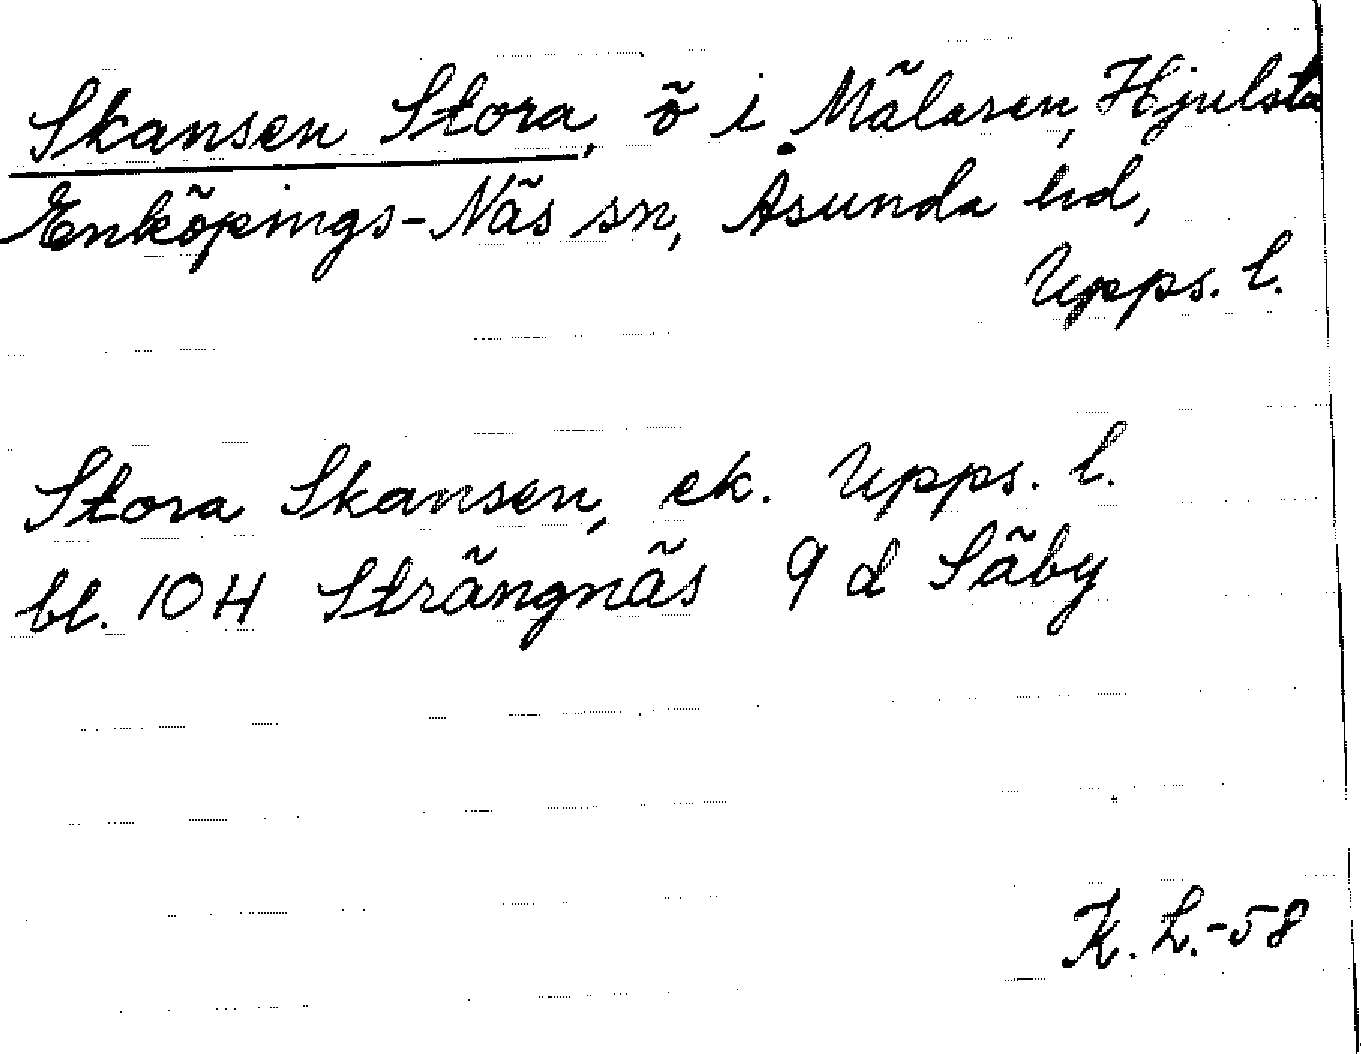 Skansen Stora, ö i Mälaren, Hjulsta
Enköpings-Näs sn, Åsunda hd,
Upps. l.
Stora Skansen, ek. Upps. l.
bl. 10H Strängnäs 9 d Säby
K. L.-58